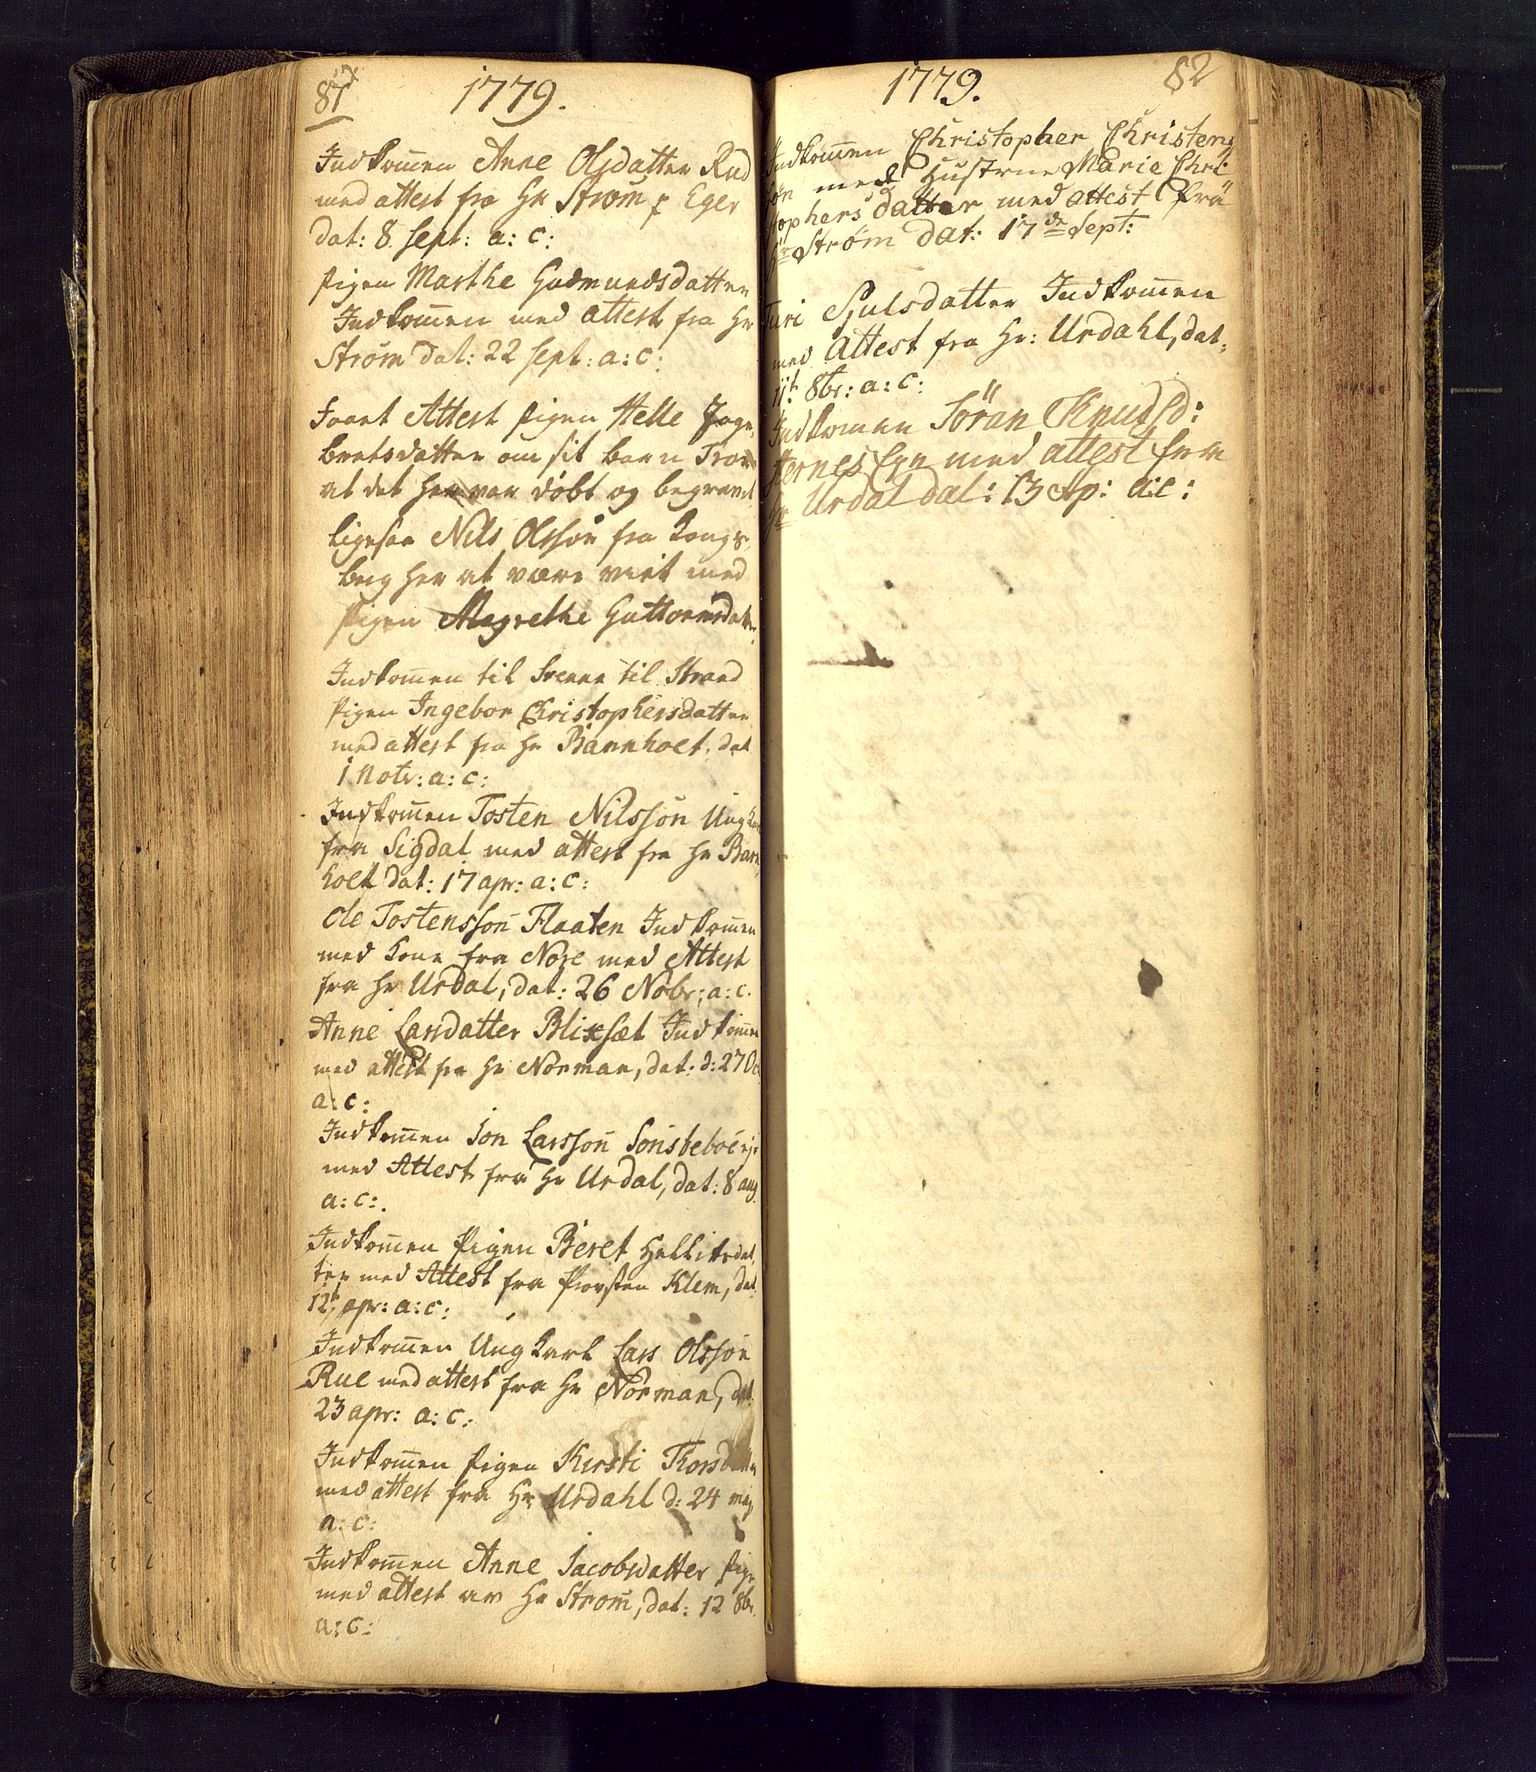 81
1779.
Indkom̄en Anne Olsdatter Rud
med attest fra Hr Strøm p Eger
dat: 8 sept: a: c:
Pigen Marthe Gudmundsdatter
Indkom̄en med attest fra Hr
Strøm dat: 22 sept: a: c:
Attest Pigen Helle
bretsdatter om sit barn
at det her var døbt og begravet
ligesaa Nils Olssøn fra Kongs-
berg her at være viet med
Pigen Magrethe Guttormsdatter
Indkom̄en til Svenne til Strand
Pigen Ingebor Christophersdatter
med attest fra Hr Barnholt, dat
1 Novr: a: c:
Indkom̄en Tosten Nilssøn Ungkarl
fra Sigdal med attest fra Hr Barn
holt dat: 17 apr: a: c:
Ole Tostenssøn Flaaten Indkom̄en
med Kone fra Nore med Attest
fra Hr Urdal, dat: 26 Nobr: a: c.
Anne Larsdatter Blixsæt Indkom̄en
med attest fra Hr Norman, dat: d: 27 Oc
a: c:
Indkom̄en Jon Larssøn
med Attest fra Hr Urdal, dat: 8 aug
a: c:.
Indkom̄en Pigen Beret Helliksdat
ter med Attest fra Provsten Klem, dat
12t apr: a: c:
Indkom̄en Ungkarl Lars Olssøn
Rue med attest fra Hr Norman, dat
23 apr: a: c:
Indkom̄en Pigen Kirsti Thorsdatter
med attest fra Hr Urdahl d: 24 maj
a: c:
Indkom̄en Anne Jacobsdatter Pige
med attest av Hr Strøm, dat: 12 8br.
a: c:
1779.
82
Indkom̄en Christopher Christens
søn med Hustrue Marie Chri
stophers datter med attest fra
Hr Strøm dat: 17de Sept:
Turi Sjulsdatter Indkom̄en
med Attest fra Hr: Urdahl, dat:
11t 8br: a: c:
Indkomen Søren Knudsd:
med attest fra
Hr Urdal dat: 13 Ap: a: c: